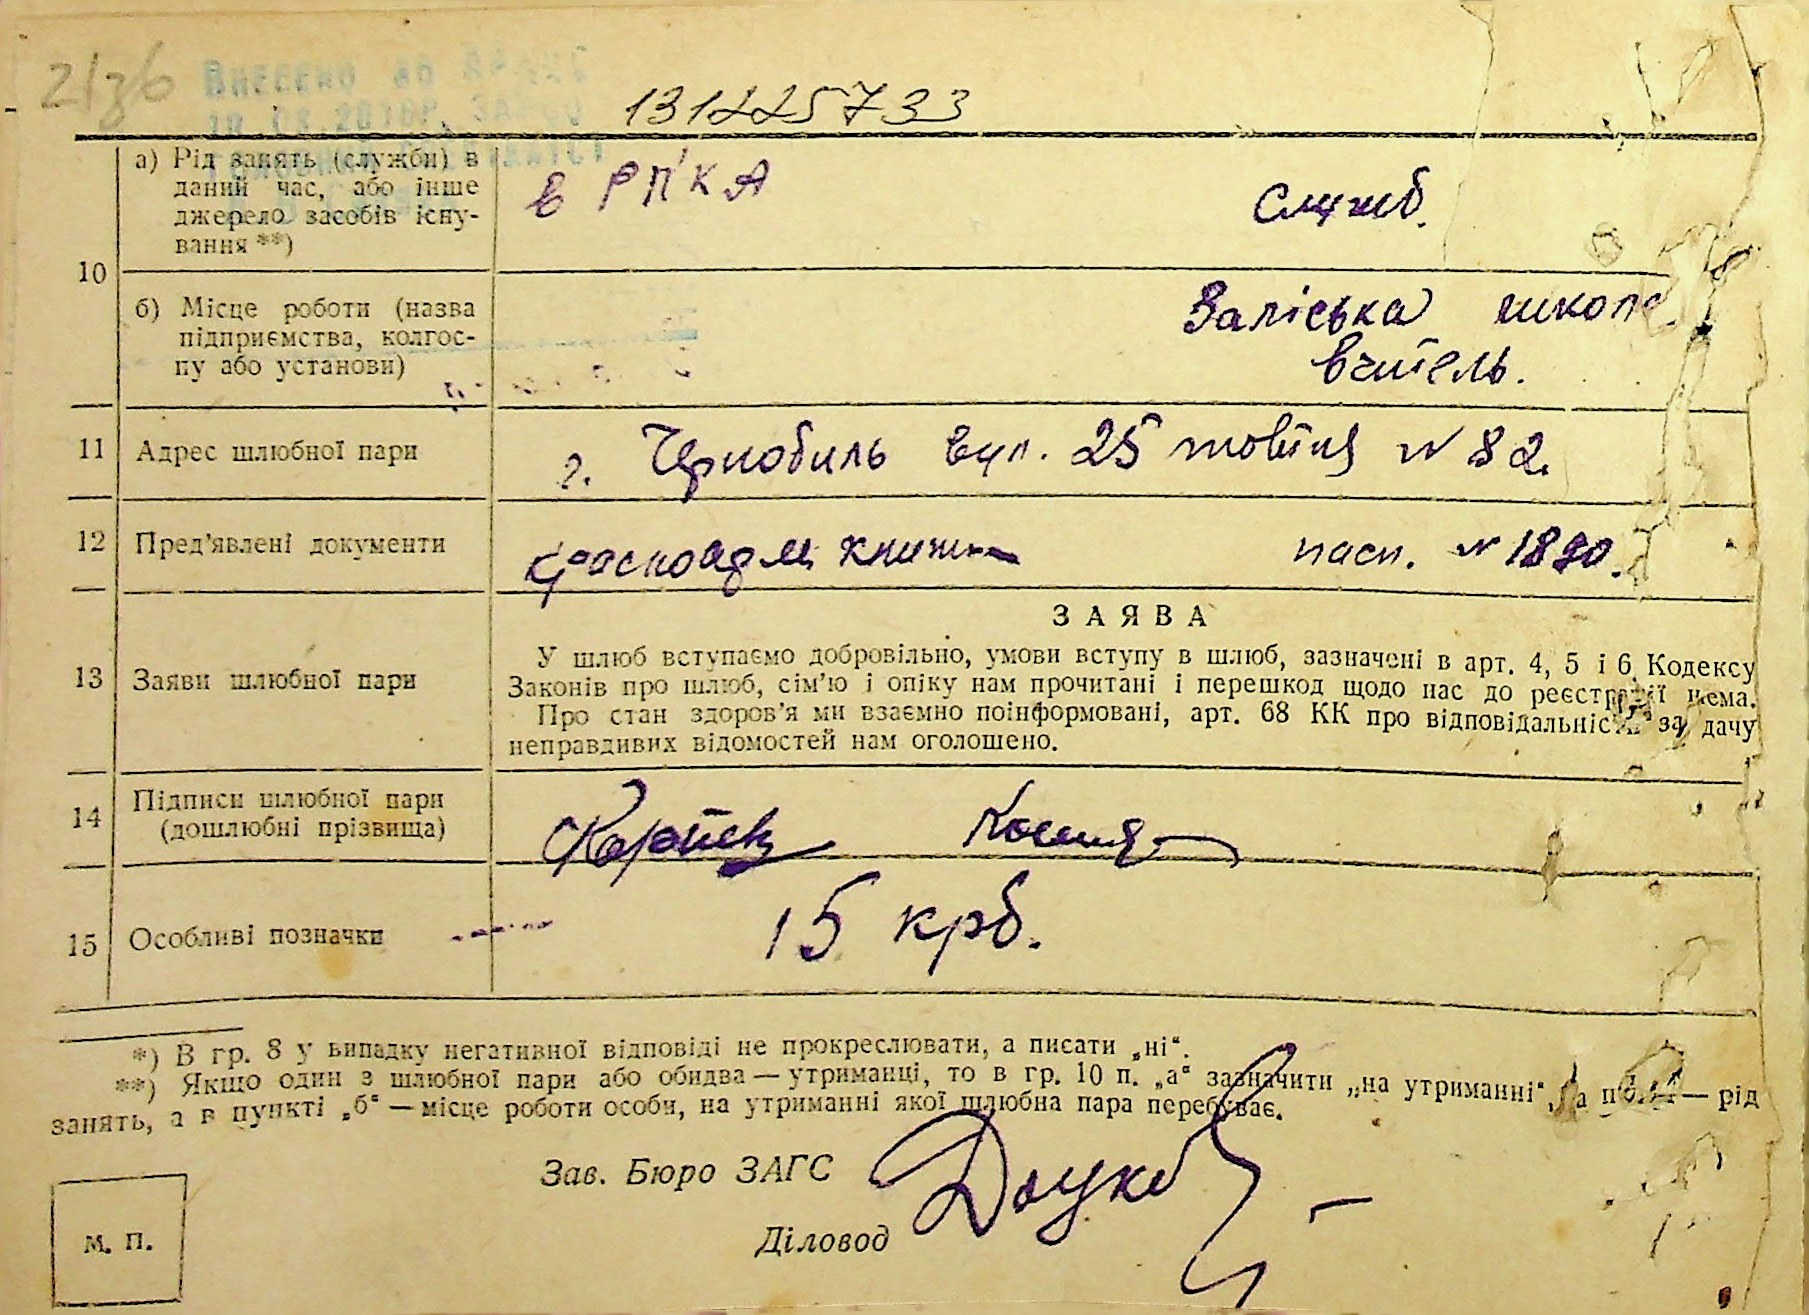 2/зб
Внесено до
131225733
а) Рід занять (служби) в
даний час, або інше
джерело засобів існу-
вання **)
в РПКА
Служб.
10
б) Місце роботи (назва
підприємства, колгос-
пу або установи)
Заліська школа
вчитель.
11 Адрес шлюбної пари
г. Чернобиль вул. 25 жовтня № 82.
12 Пред’явлені документи
красноарм книжка
пасп. № 1890.
ЗАЯВА
13 Заяви шлюбної пари
У шлюб вступаємо добровільно, умови вступу в шлюб, зазначені в арт. 4, 5 і 6 Кодексу
Законів про шлюб, сім’ю і опіку нам прочитані і перешкод щодо нас до реєстрації нема.
Про стан здоров’я ми взаємно поінформовані, арт. 68 КК про відповідальність за дачу
неправдивих відомостей нам оголошено.
14 Підписи шлюбної пари
(дошлюбні прізвища)
15 Особливі позначки
15 крб.
*) В гр. 8 у випадку негативної відповіді не прокреслювати, а писати „ні“.
**) Якщо один з шлюбної пари або обидва — утриманці, то в гр. 10 п. „а“ зазначити „на утриманні“, а — рід
занять, а в пункті „б“ — місце роботи особи, на утриманні якої шлюбна пара перебуває.
Зав. Бюро ЗАГС
Діловод
М. П.